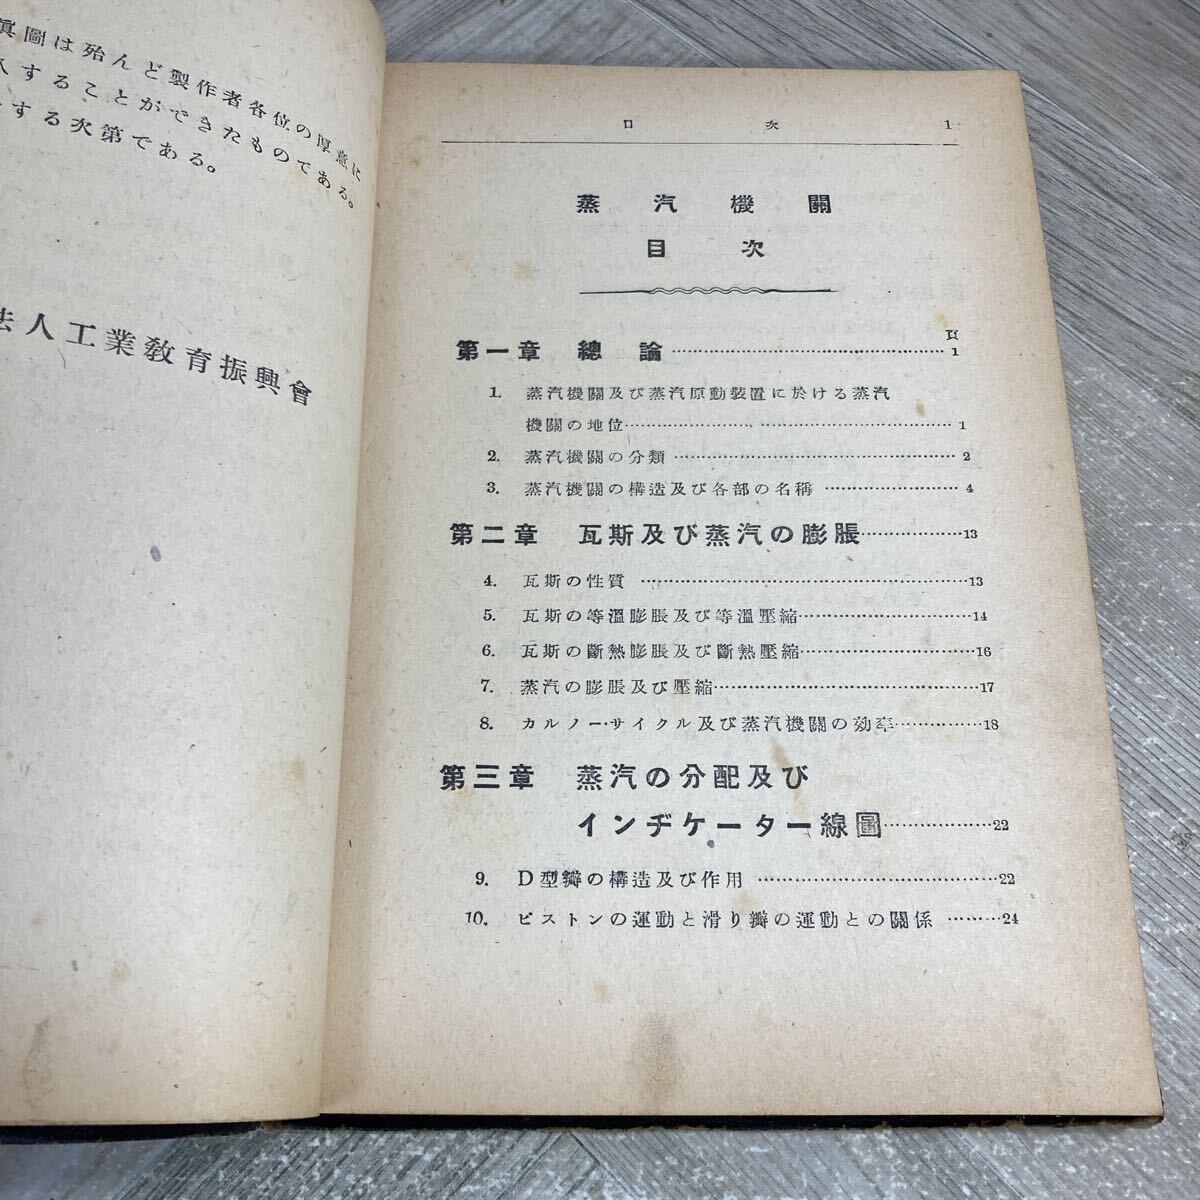 眞圖は殆んど製作者各位の厚意に
入することができたものである。
する次第である。
法人工業敎育振興會
目 次 1
蒸汽機關
目次
頁
第一章 總論 1
1. 蒸汽機關及び蒸汽原動裝置に於ける蒸汽
機關の地位 1
2. 蒸汽機關の分類 2
3. 蒸汽機關の構造及び各部の名稱 4
第二章 瓦斯及び蒸汽の膨脹 13
4. 瓦斯の性質 13
5. 瓦斯の等溫膨脹及び等溫壓縮 14
6. 瓦斯の斷熱膨脹及び斷熱壓縮 16
7. 蒸汽の膨脹及び壓縮 17
8. カルノー・サイクル及び蒸汽機關の効率 18
第三章 蒸汽の分配及び
インヂケーター線圖 22
9. D型瓣の構造及び作用 22
10. ピストンの運動と滑り瓣の運動との關係 24